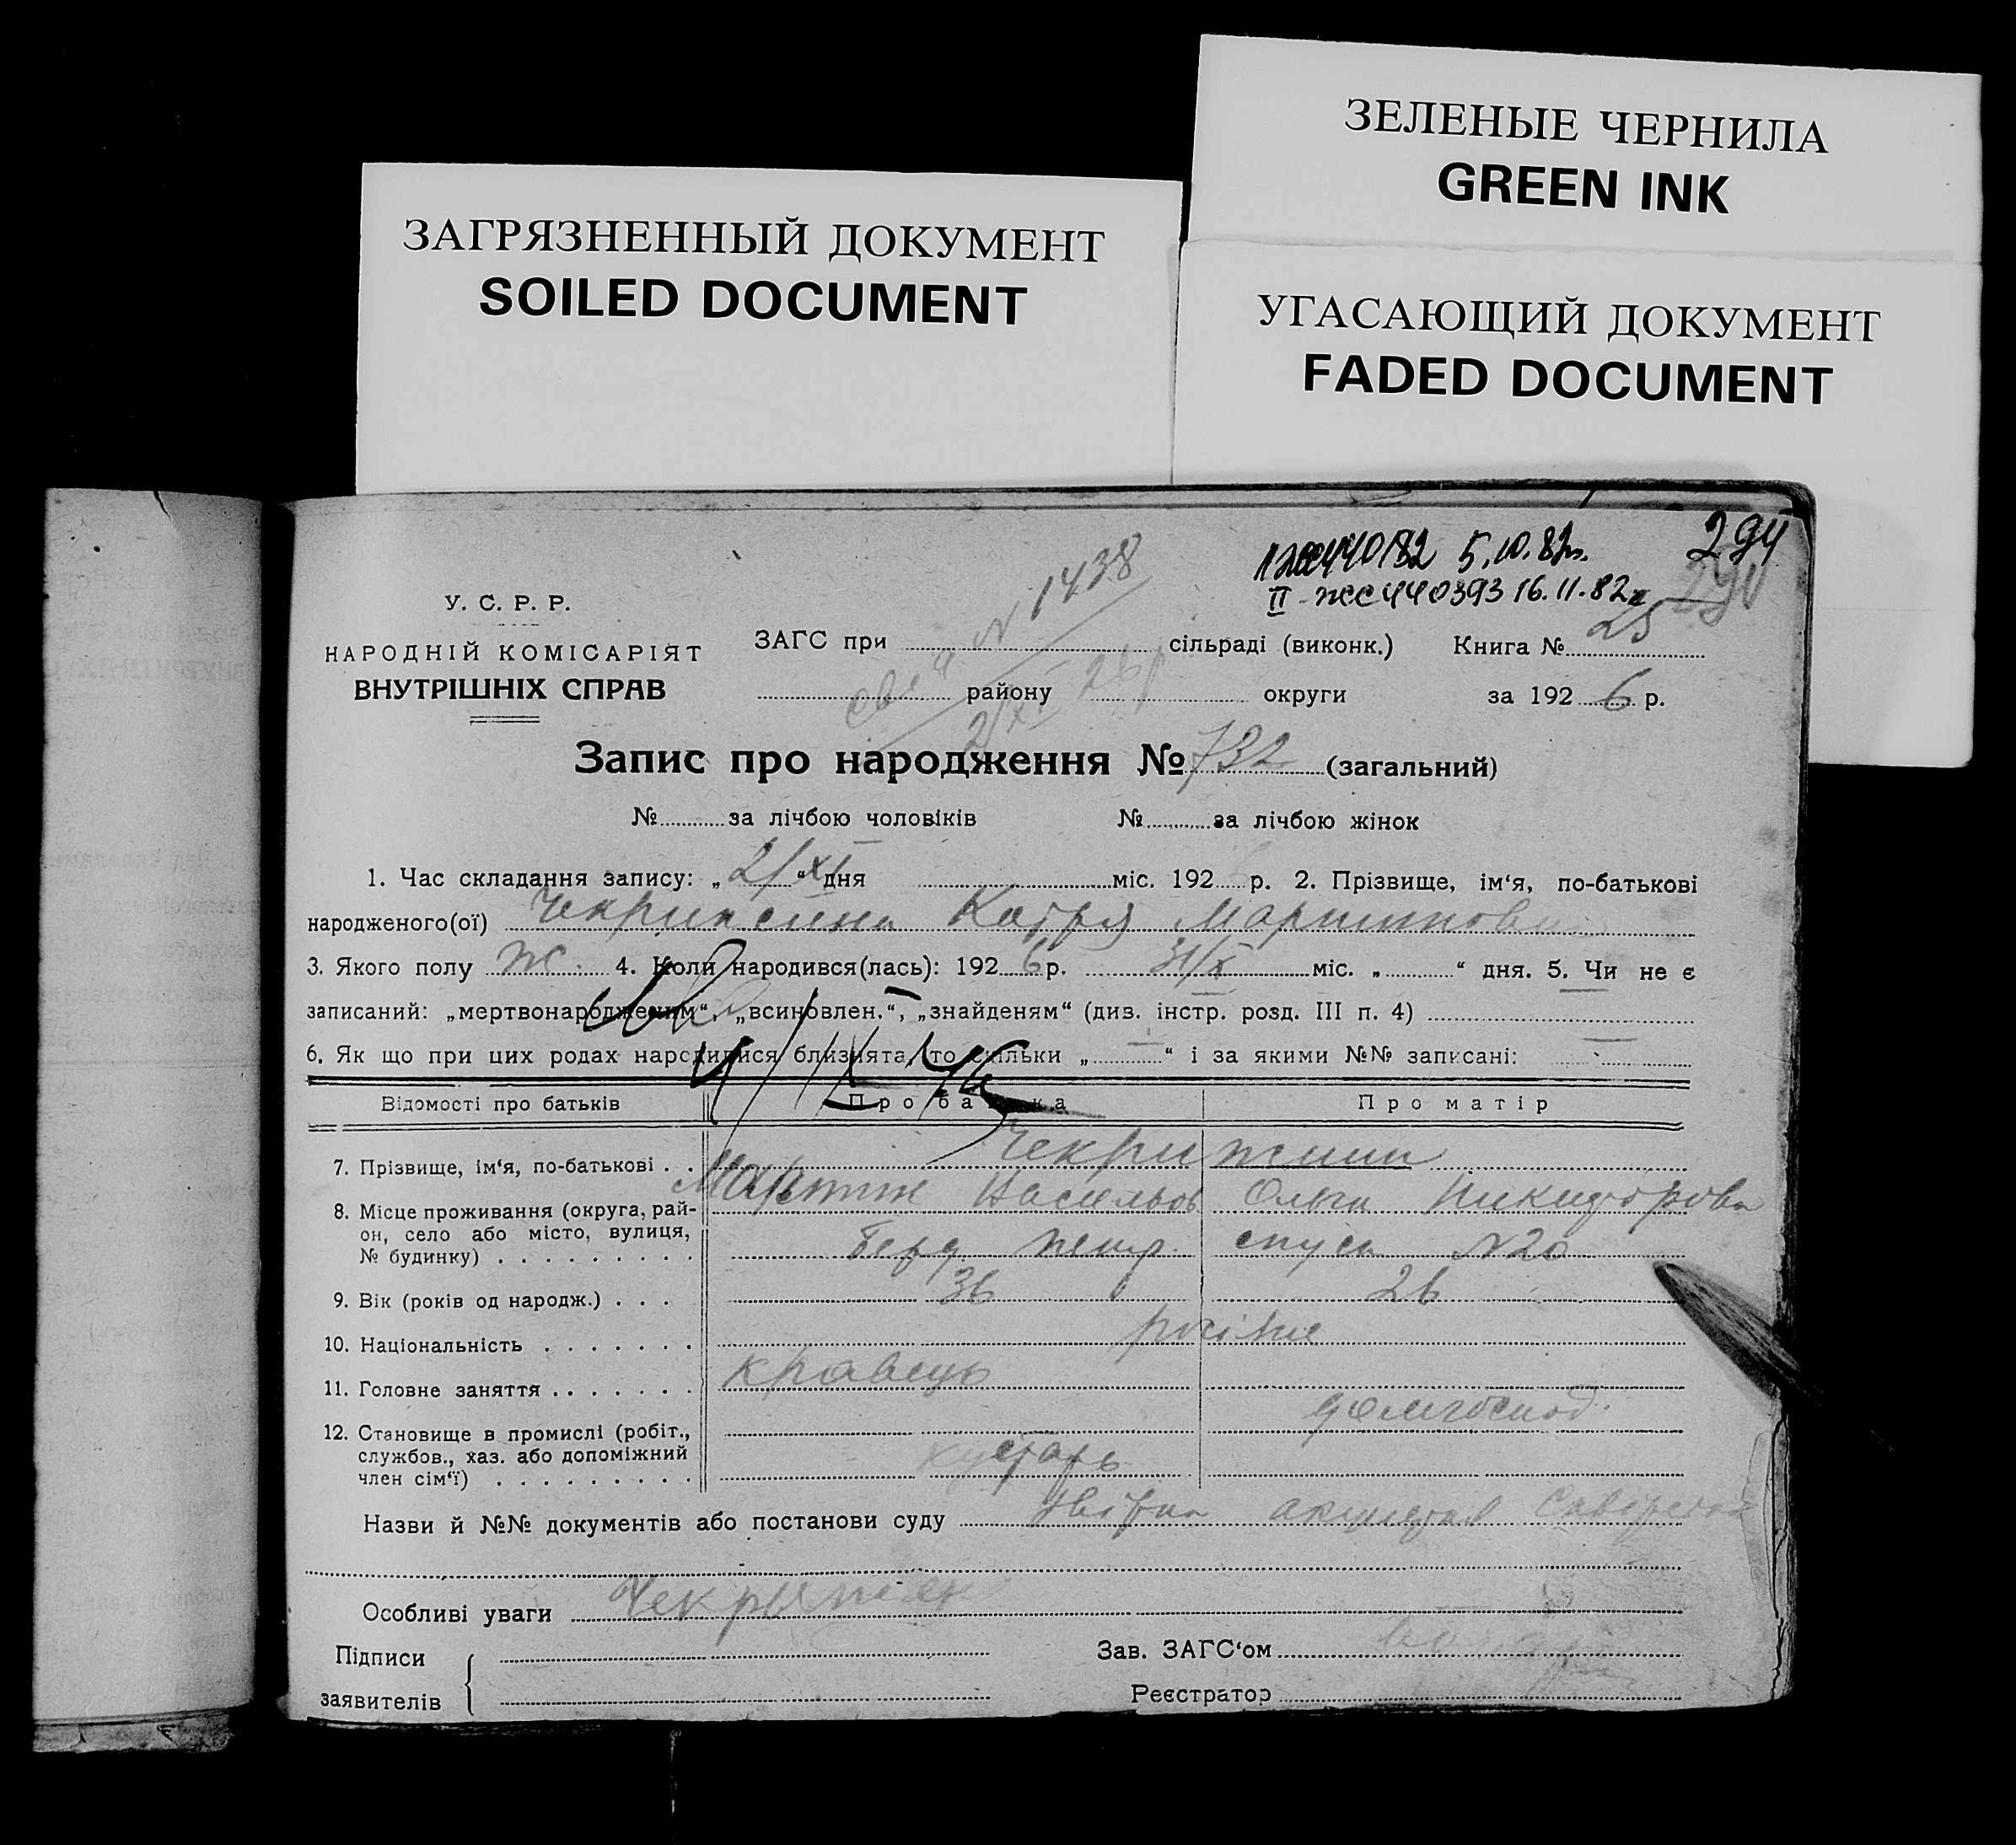 ЗЕЛЕНЫЕ ЧЕРНИЛА
GREEN INK
ЗАГРЯЗНЕННЫЙ ДОКУМЕНТ
SOILED DOCUMENT
УГАСАЮЩИЙ ДОКУМЕНТ
FADED DOCUMENT
294
5.10.82г.
II-ЖС440393 16.11.82г
N 1438
У. С. Р. Р.
НАРОДНІЙ КОМІСАРІЯТ
ВНУТРІШНІХ СПРАВ
ЗАГС при сільраді (виконк.) Книга № 25
району округи за 1926 р.
2/XI 26 р
Запис про народження № 732 (загальний)
№ за лічбою чоловіків № за лічбою жінок
1. Час складання запису: „2/XI“ дня міс. 192 р. 2. Прізвище, ім‘я, по-батькові
народженого(ої) Катря Мартинова
3. Якого полу ж. 4. Коли народився(лась): 1926 р. 31/X міс. „ “ дня. 5. Чи не є
записаний: „мертвонародженим“, „всиновлен.“, „знайденям“ (див. інстр. розд. III п. 4) —
6. Як що при цих родах народилися близнята, то скільки „—“ і за якими №№ записані: —
Відомості про батьків Про батька Про матір
7. Прізвище, ім‘я, по-батькові . . Чекрижини
Мартин Васильов Ольга Никифорова
8. Місце проживання (округа, рай-
он, село або місто, вулиця,
№ будинку) . . . . . . . . . N 20
9. Вік (років од народж.) . . . 36 26
10. Національність . . . . . . .
11. Головне заняття . . . . . . . кравець
домгоспод.
12. Становище в промислі (робіт.,
службов., хаз. або допоміжний
член сім‘ї) . . . . . . . . . кустарь
Назви й №№ документів або постанови суду
Особливі уваги
Підписи
заявителів
Зав. ЗАГС‘ом
Реєстратор